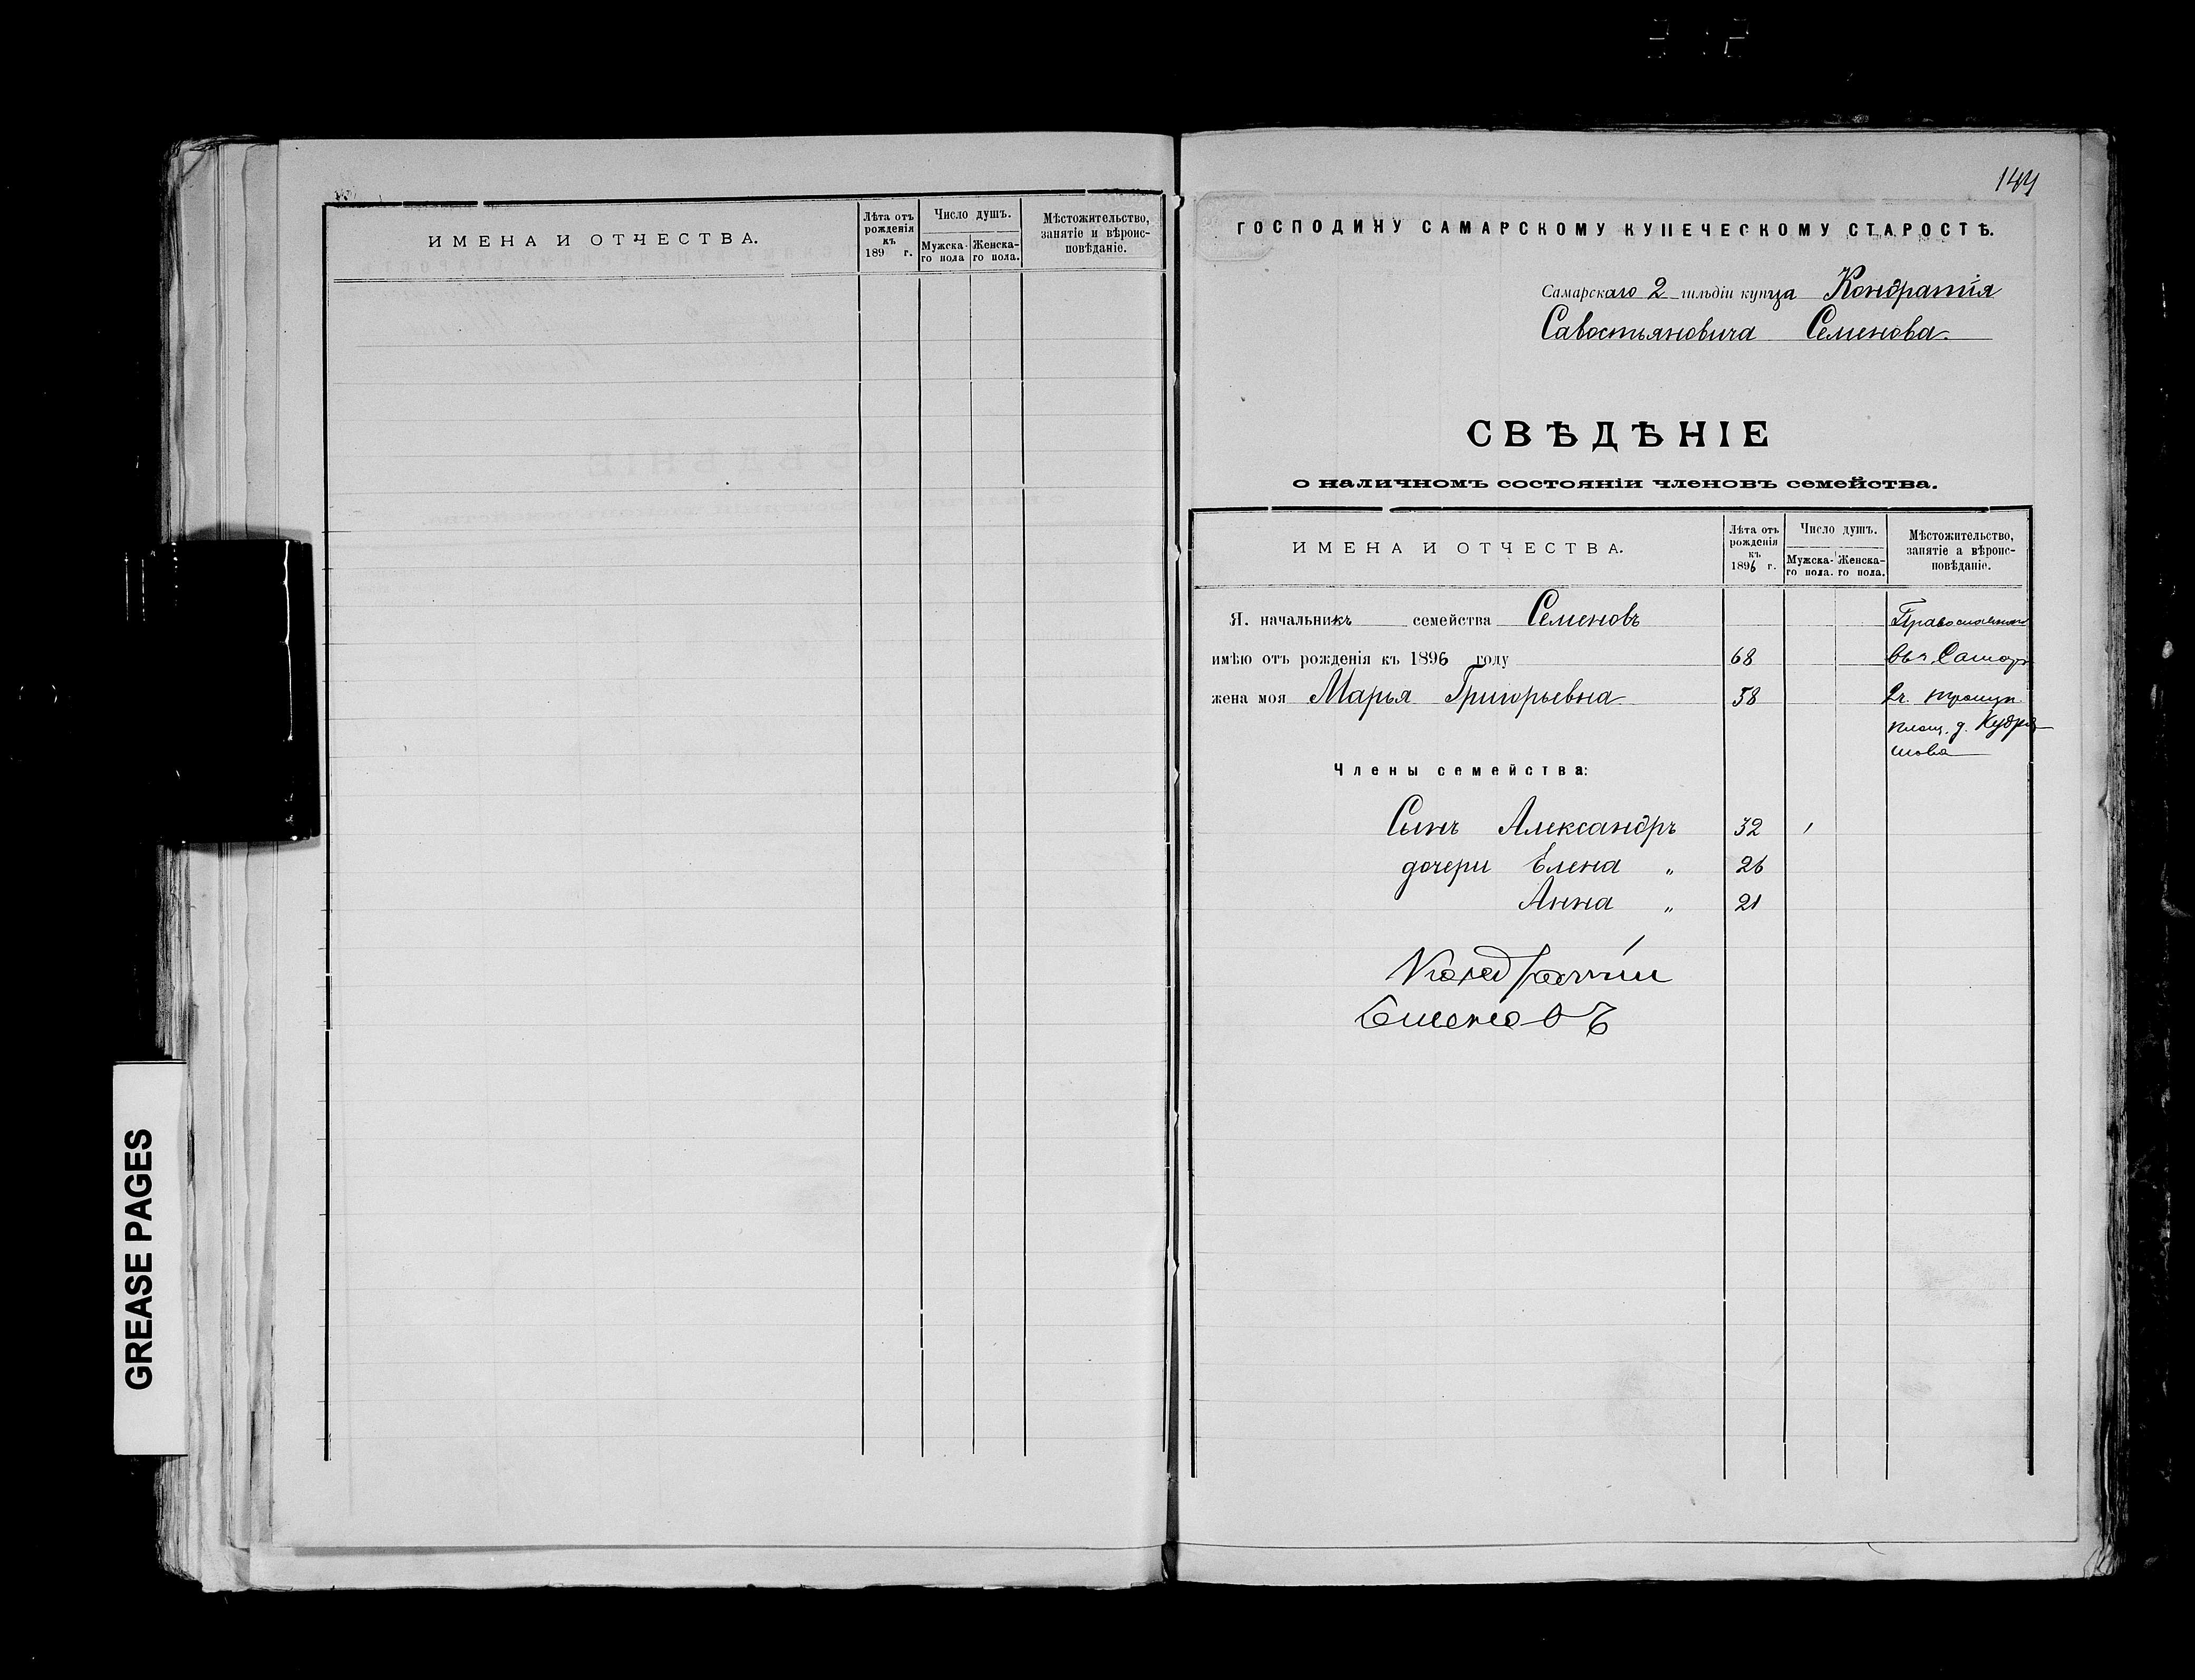 ИМЕНА И ОТЧЕСТВА.
Лѣта отъ рожденія къ 189 г.
Число душъ.
Мужска-го пола
Женска-го пола.
Мѣстожительство, занятіе и вѣроис-повѣданіе.
144
ГОСПОДИНУ САМАРСКОМУ КУПЕЧЕСКОМУ СТАРОСТѢ.
Самарскаго 2 гильдіи купца Кондратія
Савостьяновича Семенова.
СВѢДѢНІЕ
о наличномъ состояніи членовъ семейства.
ИМЕНА И ОТЧЕСТВА.
Лѣта отъ рожденія къ 1896 г.
Число душъ.
Мужска-го пола.
Женска-го пола.
Мѣстожительство, занятіе а вѣроис-повѣданіе.
Я. начальникъ семейства Семеновъ
имѣю отъ рожденія къ 1896 году 68
жена моя Марья Григорьевна 58
Площ. д. Кудря
шова
Члены семейства:
Сынъ Александръ 32 1
дочери Елена " 26
Анна " 21
Кондратій
Семеновъ
GREASE PAGES